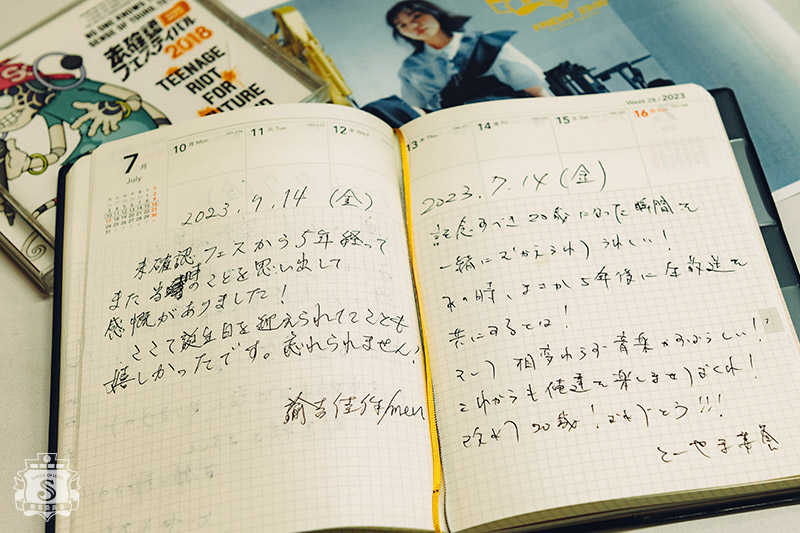 NO ONE KNOWS
SENSE OF SOUND IS
未確認
フェスティバル
2018
TEENAGE
RIOT
FOR
FUTURE
7月
July
10 月 Mon
11 火 Tue
12 水 Wed
2023.7.14 (金)
未確認フェスから5年経って
また当時のことを思い出して
感慨がありました!
ここで誕生日を迎えられてとても
嬉しかったです。忘れられません!
諭吉佳作/men
Week 28 / 2023
13 木 Thu
14 金 Fri
15 土 Sat
16 日 Sun
2023.7.14 (金)
記念すべき20歳になった瞬間を
一緒にむかえられ うれしい!
あの時、まさか5年後に生放送を
共にするとは!
相変わらず音楽がすばらしい!
これからも俺達を楽しませておくれ!
改めて20歳!おめでとう!!!
とーやま委員
S